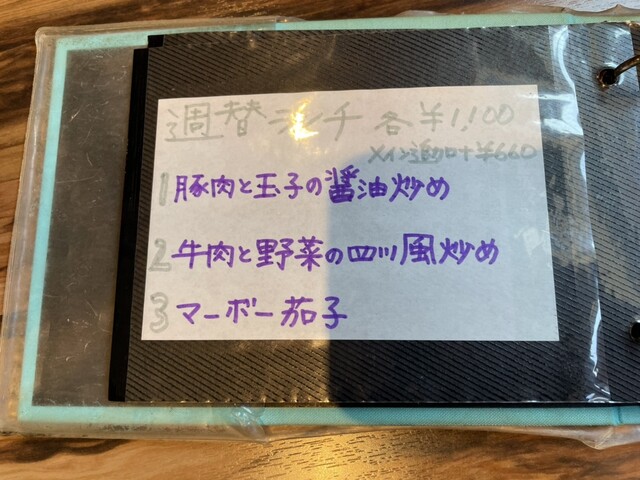 週替ランチ 各¥1,100
メイン追加+¥660
1 豚肉と玉子の醤油炒め
2 牛肉と野菜の四川風炒め
3 マーボー茄子